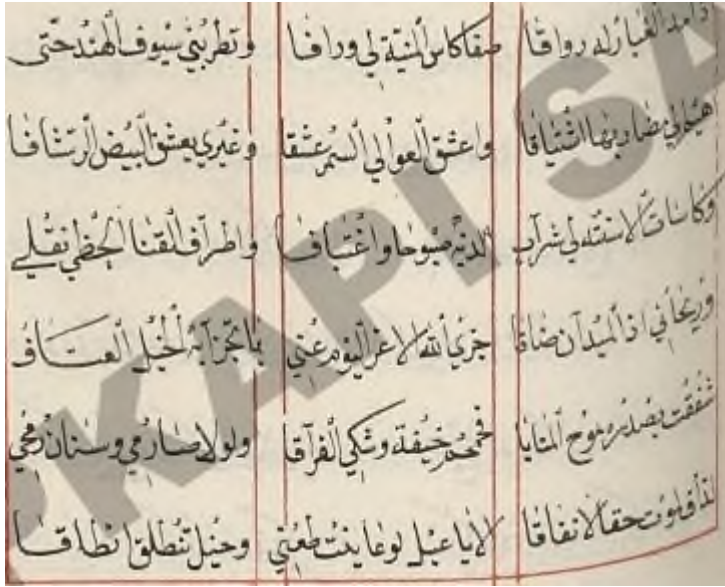 دامد الغبار له رواقا صفا كاس المنية لي وراقا وتطربني سيوف الهند حتى
هيم في مضاربها اشتياقا واعشق العوالي السمر عشقا وغيري يعشق البيض الرشاقا
وكاسات الاسنة لي شراب الذ به صبوحا واغتباقا واطراف القنا الخطي نقلي
وريحاني اذ الميدان ضاقا جزي الله الاغر اليوم عني بما يجزي به الخيل العتاق
شققت بصدره موج المنايا فحمحم خيفة وشكي الفراقا ولولا صارمي وسنان رمحي
حقا لا نفاقا الا يا عبل لو عاينت طعني وخيل تنطلق انطاقا
PKAPI SA